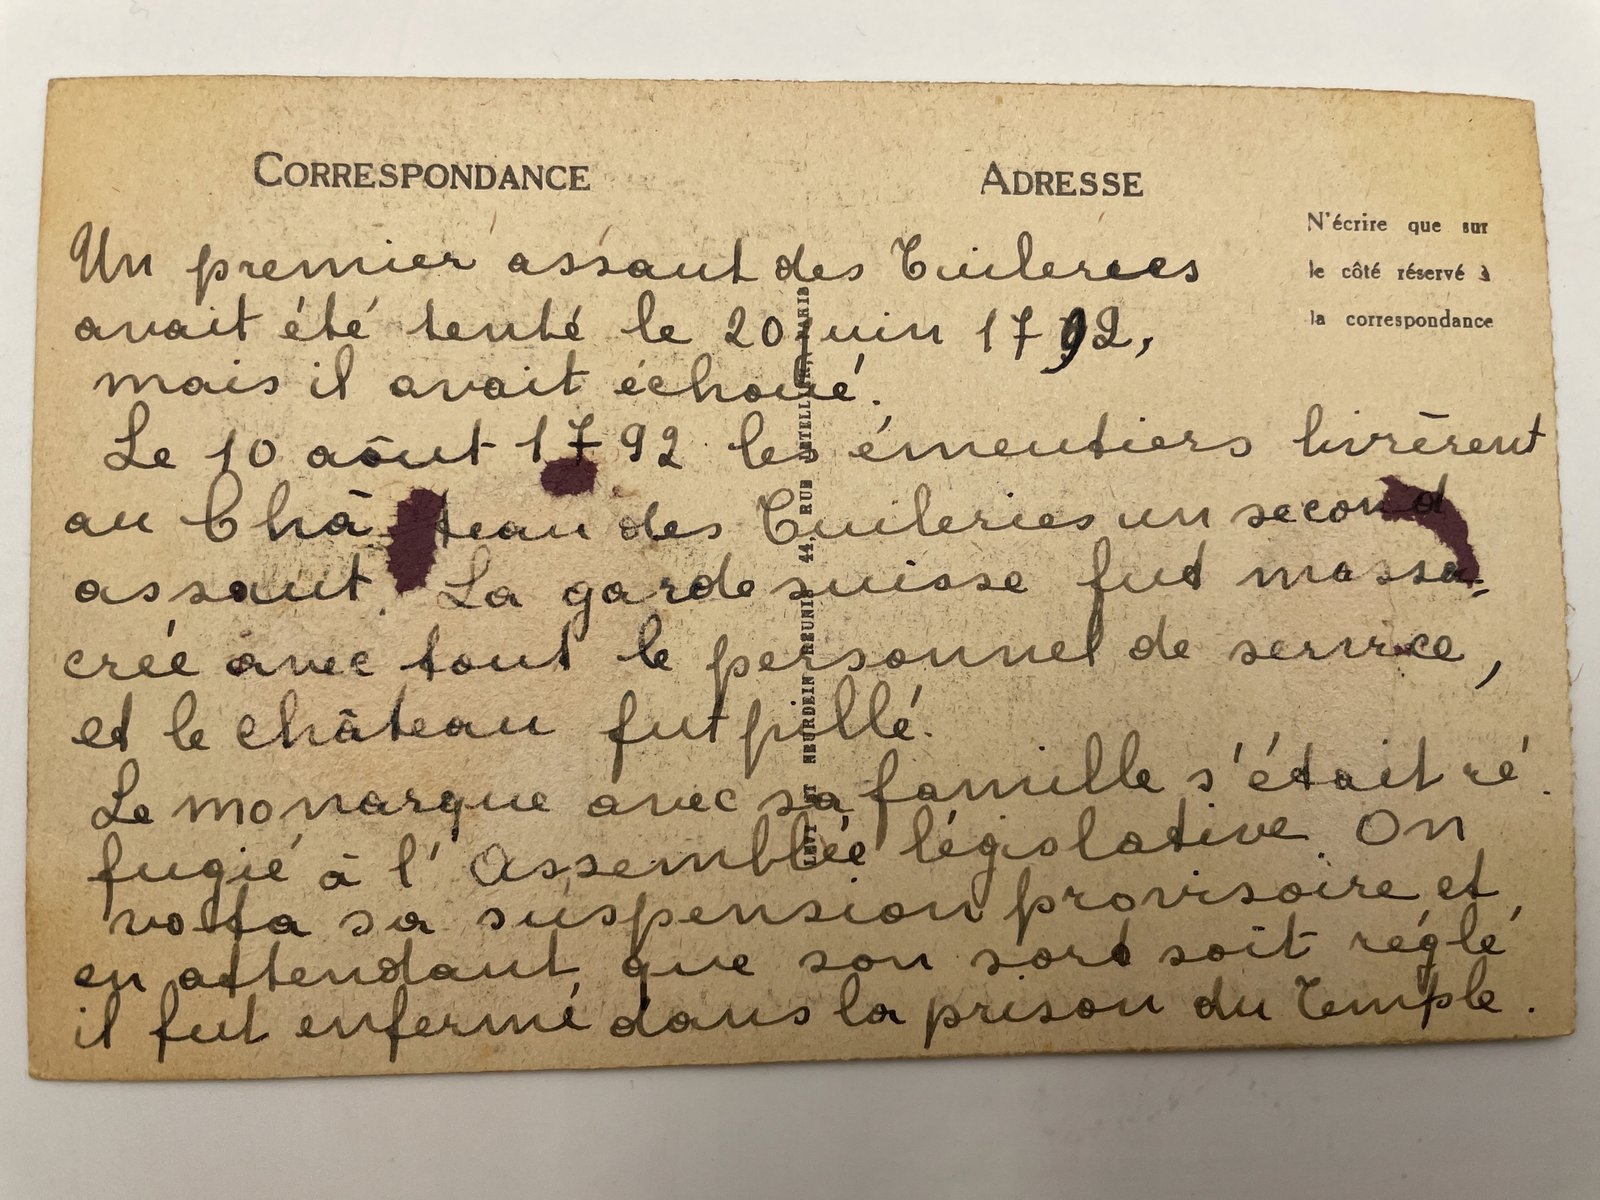 CORRESPONDANCE
ADRESSE
N'écrire que sur
le côté réservé à
la correspondance
Un premier assaut des Tuileries
avait été tenté le 20 juin 1792,
mais il avait échoué.
Le 10 aôut 1792 les émeutiers livrèrent
au Château des Tuileries un second
assaut. La garde suisse fut massa-
crée avec tout le personnel de service,
et le château fut pillé.
Le monarque avec sa famille s'était ré
fugié à l'Assemblée législative. On
vota sa suspension provisoire et,
en attendant que son sort soit réglé
il fut enfermé dans la prison du Temple.
LEVY ET NEURDEIN RÉUNIS 44, RUE LETELLIER, PARIS